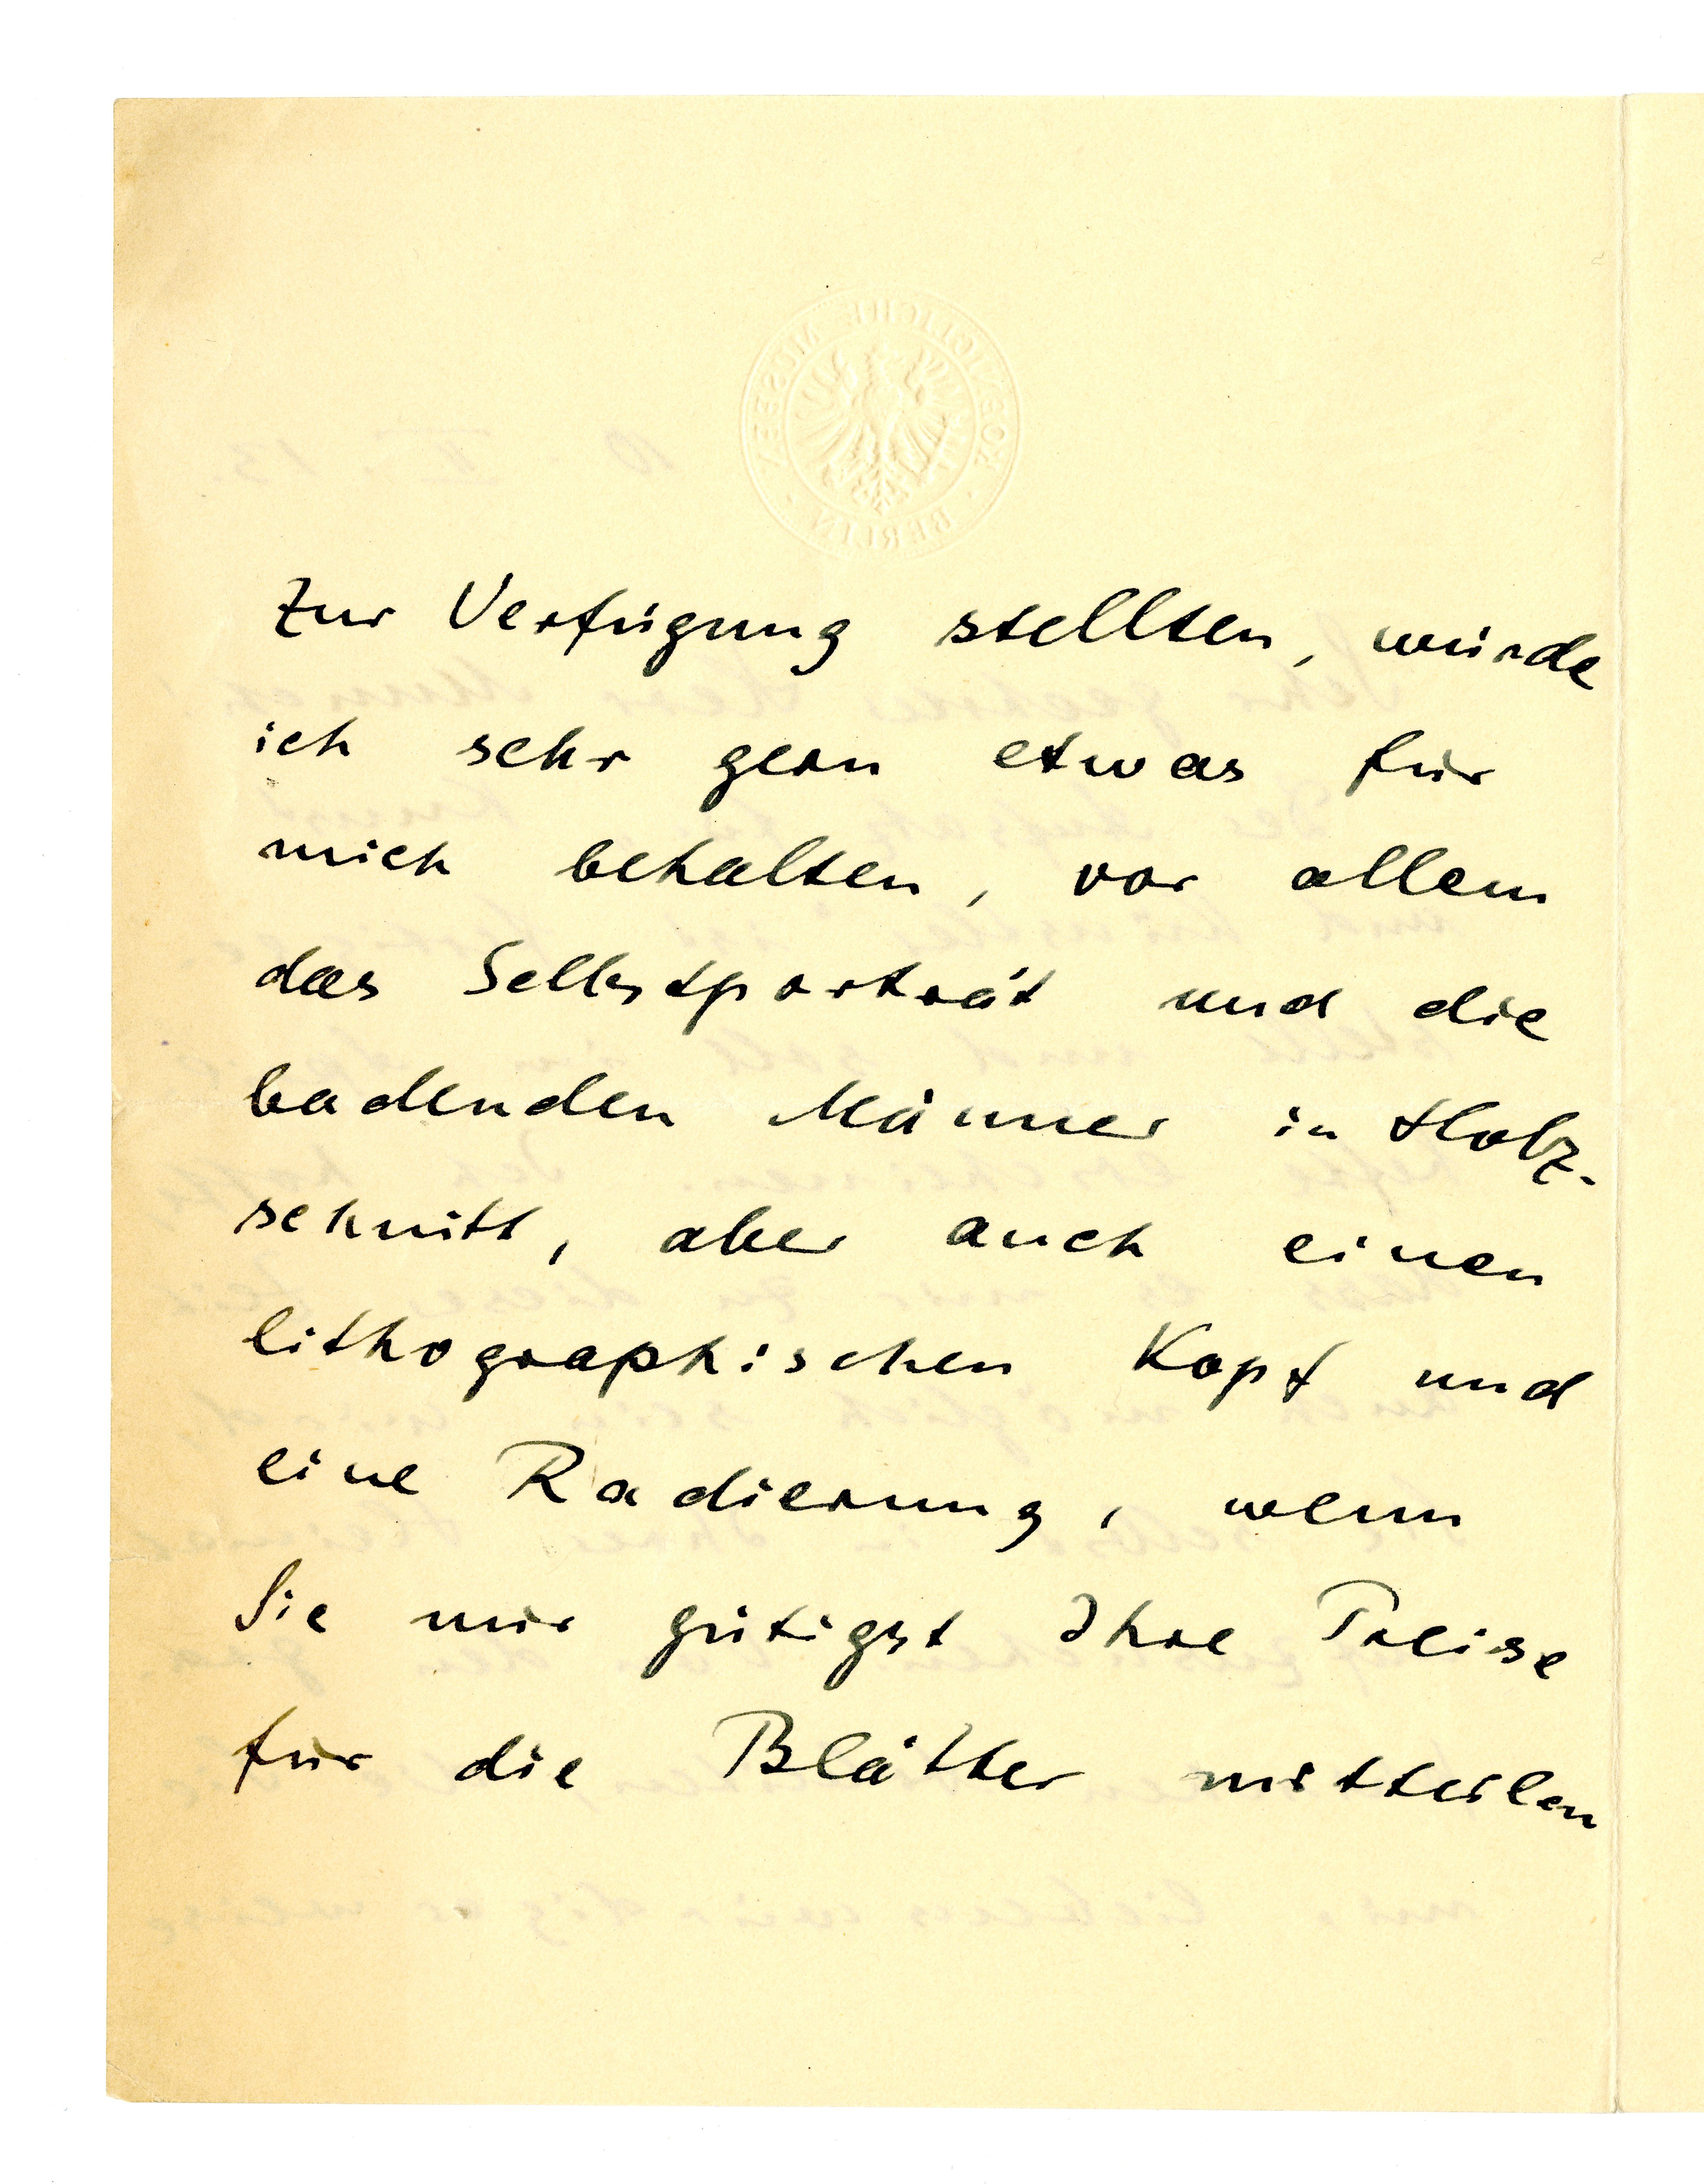 KOENIGLICHE MUSEEN
· BERLIN ·
zur Verfügung stellten, würde
ich sehr gern etwas für
mich behalten, vor allem
das Selbstporträt und die
badenden Männer in Holz-
schnitt, aber auch einen
lithographischen Kopf und
eine Radierung, wenn
Sie mir gütigst Ihre Preise
für die Blätter mitteilen